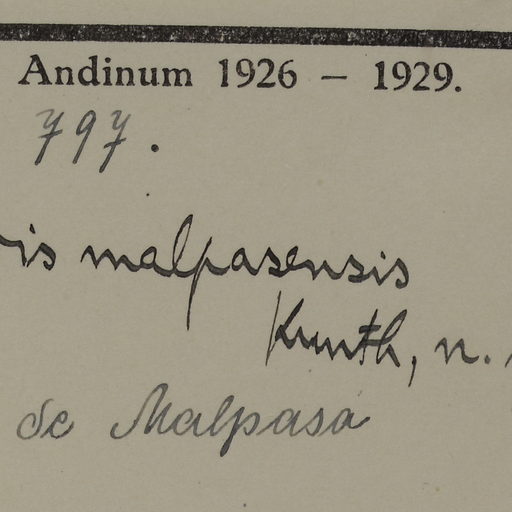 Andinum 1926 – 1929.
797.
is malpasensis
Kunth, n.
de Malpasa